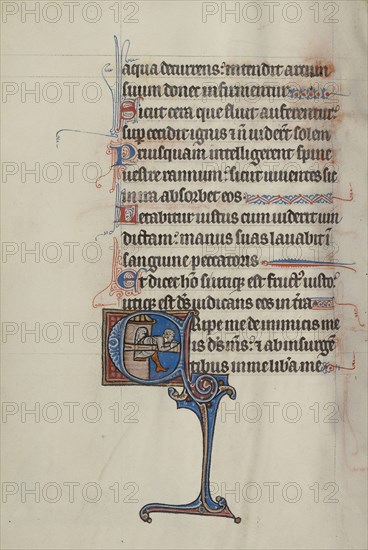 aqua decurrens: intendit arcum
suum donec infirmentur
Sicut cera que fluit auferentur:
sup cecidit ignis et n viderūt solem
Priusquam intelligerent spine
vestre rannum: sicut viventes sic
in ira absorbet eos
Letabitur iustus cum viderit vin
dictam: manus suas lavabit i
sanguine peccatoris
Et dicet ho si utiqz est fruct iusto:
utiqz est ds iudicans eos in tra
Eripe me de inimicis me
is ds ms: et ab insurgen
tibus in me libera me
PHOTO 12